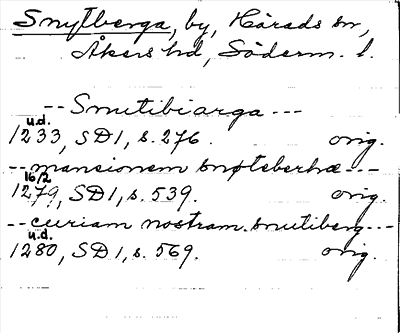 Smytberga, by, Härads sn,
Åkers hd, Söderm. l.
-- Smutibiarga ---
u.d.
1233, SD1, s. 276. orig.
-- mansionem snøteberhæ ---
16/2
1279, SD1, s. 539. orig.
-- curiam nostram smutiberg ---
u.d.
1280, SD1, s. 569. orig.